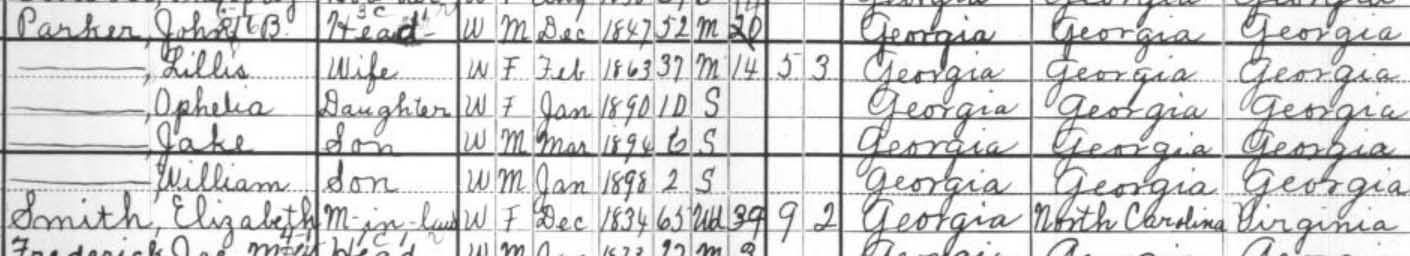 Parker, John B. Head W M Dec 1847 52 M 20 Georgia Georgia Georgia
———, Lillis Wife W F Feb 1863 37 M 14 5 3 Georgia Georgia Georgia
———, Ophelia Daughter W F Jan 1890 10 S Georgia Georgia Georgia
———, Jake Son W M Mar 1894 6 S Georgia Georgia Georgia
———, William Son W M Jan 1898 2 S Georgia Georgia Georgia
Smith, Elizabeth M-in-law W F Dec 1834 65 Wd 39 9 2 Georgia North Carolina Virginia
Frederick Head W M